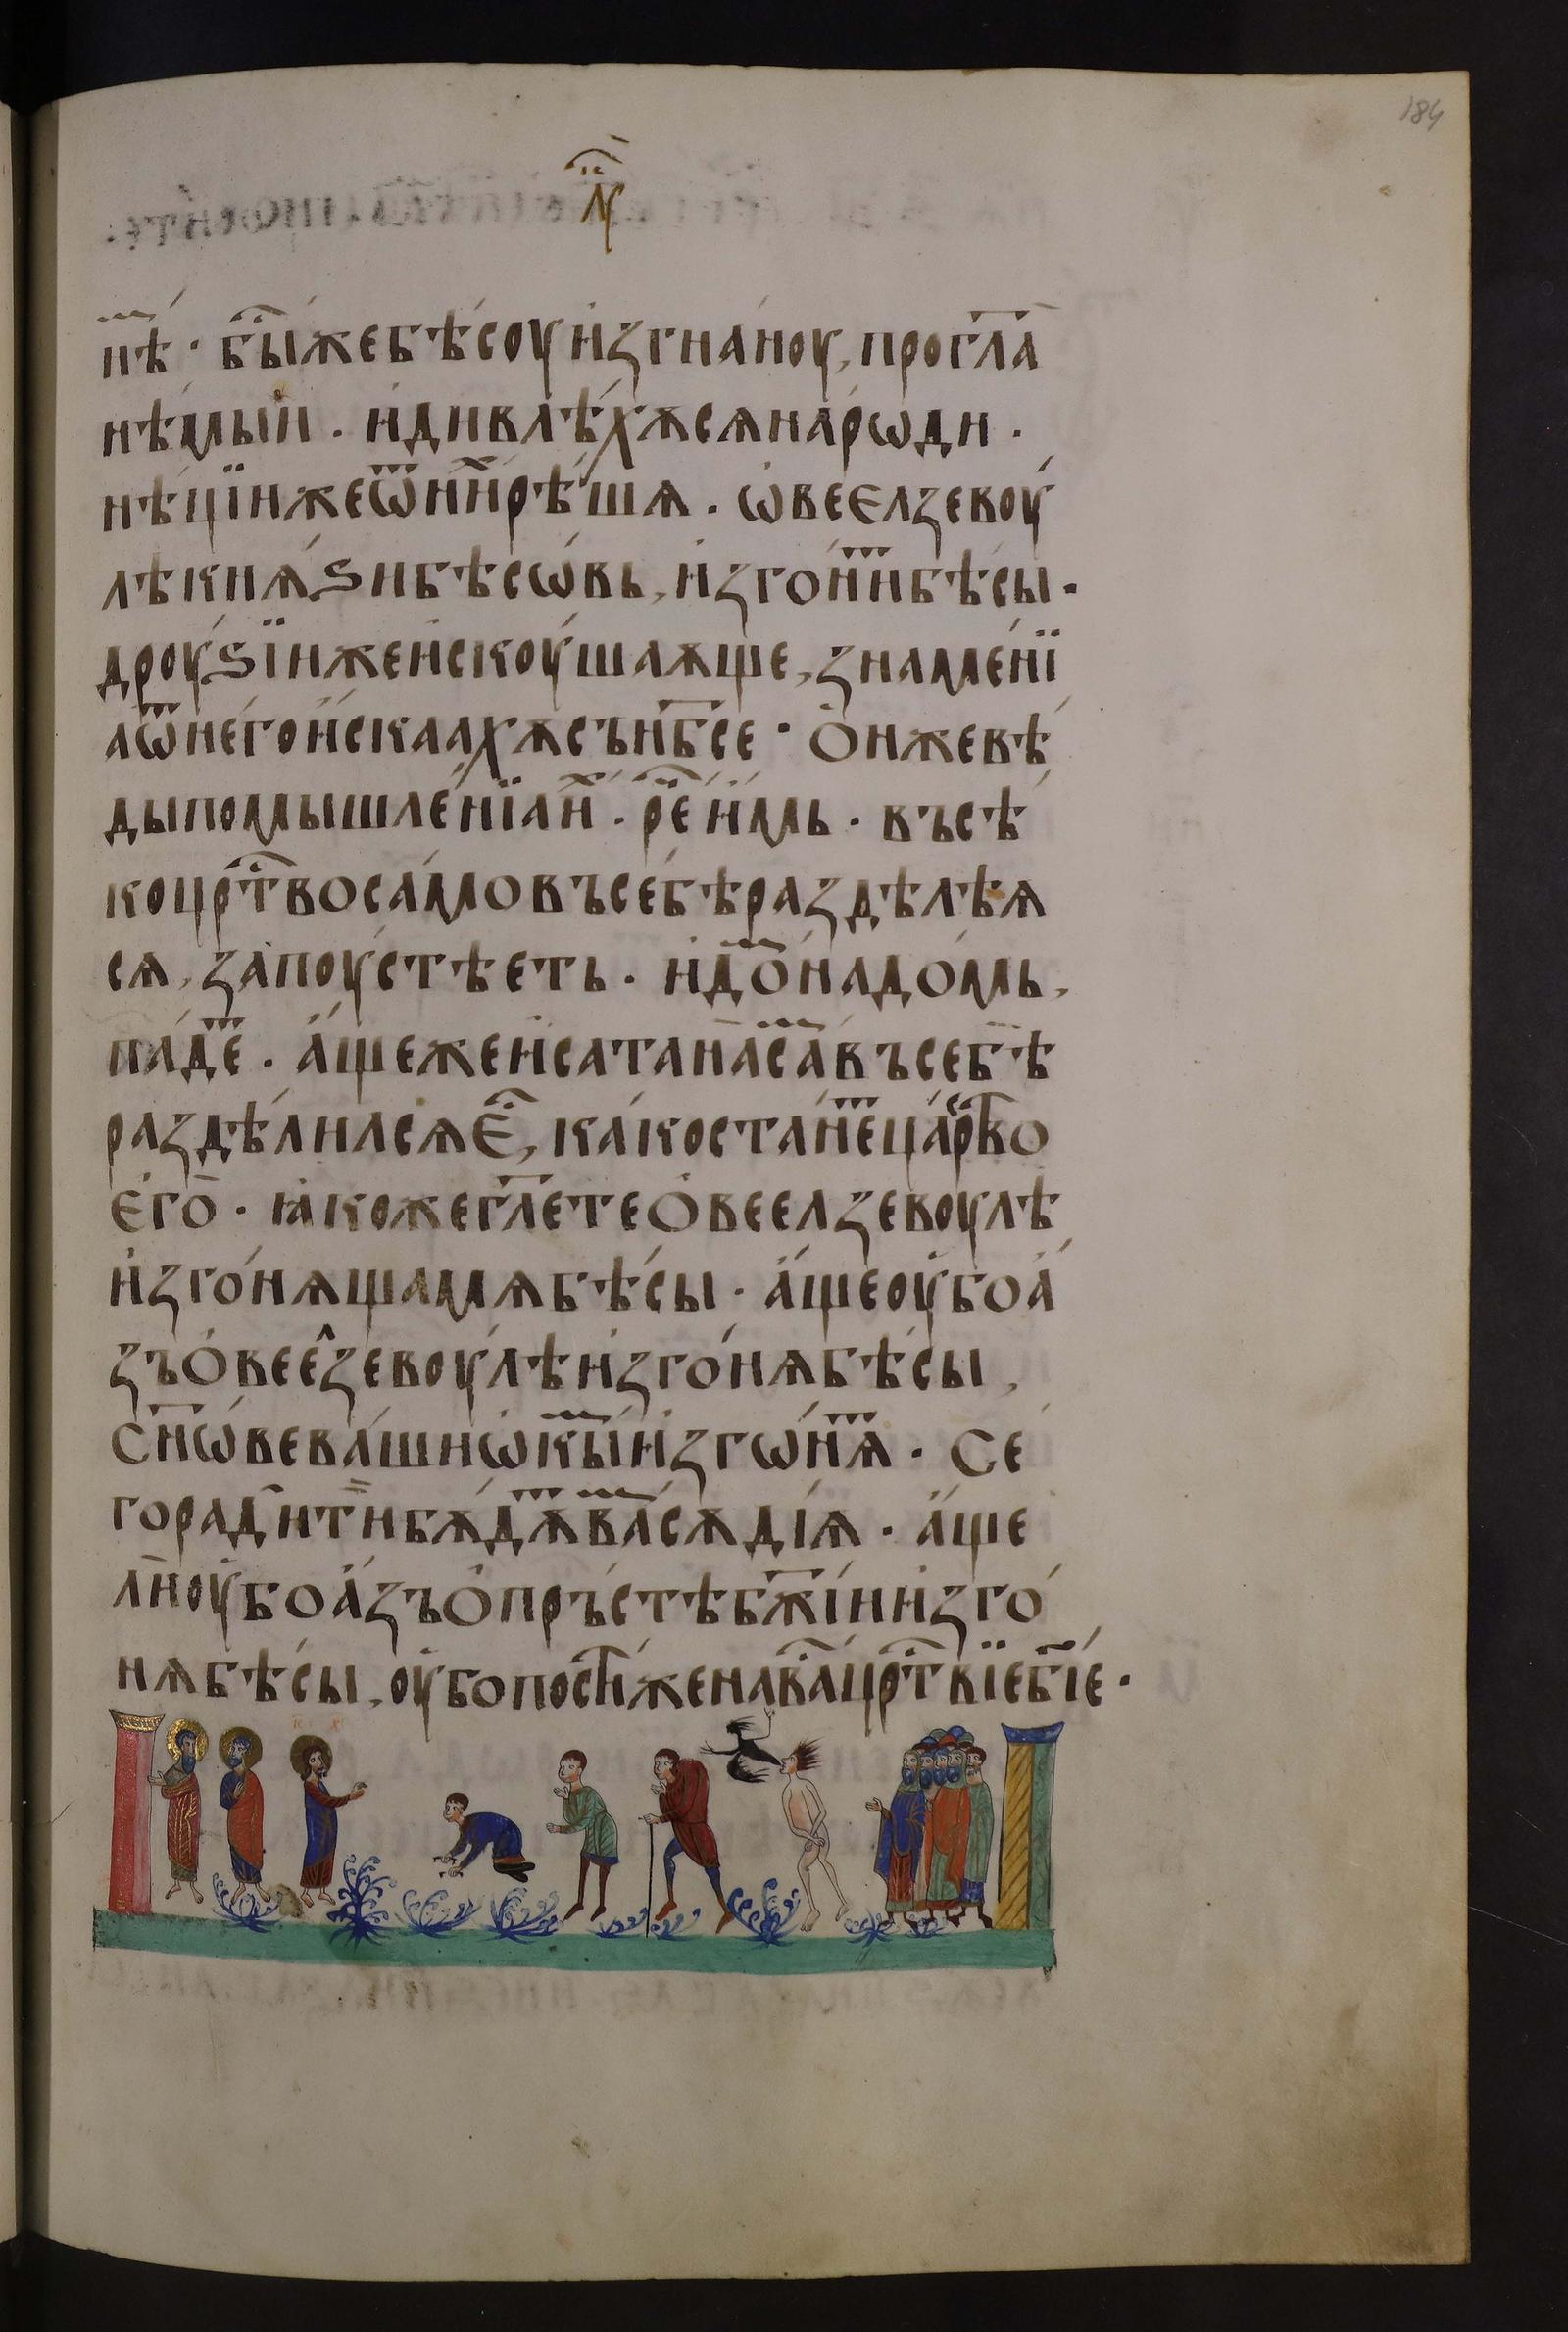 184
нѣ · бы́жебѣ́соуи҆ꙁгна́ноу, прогл҃а
нѣ́мыи . и҆дивлѣ́хѫсѧнаро́ѡди .
нѣ́цїижеѿни́рѣ́шѧ . ѡ҆веєлꙁевоу́
лѣкнѧ́ѕибѣсѡ́вь, и҆ꙁго́нⷮибѣ́сы .
дроу́ѕїижеи҆скоу́шаѫще, ꙁнаме́нї
аѿнего́и҆скаахѫсън҃бсе · О҆нжевѣ́
дыпомышле́нїаиⷯ . рⷱ҇еи҆́мь . въсѣ́
коцрⷭ҇твоса́мовъсе́бѣраꙁдѣлѣѧ
сѧ, ꙁапоу́стѣеть . и҆до́мⷨнадо́мь,
па́деⷮ . а҆́щежеи҆сатана́саⷨвъсебѣ
раꙁдѣ́лилсѧєⷭ҇, ка́коста́неⷮца́рⷭ҇во
є҆го̀ . ꙗ҆́кожегл҃етео҆веелꙁевоулѣ
и҆ꙁго́нѧщамѧбѣ́сы . а҆́щеоу҆боа҆́
ꙁъо҆веелꙁевоу́лѣи҆ꙁго́нѧбѣ́сы ,
сн҃ѡ́вева́шиѡ҆кыⷨи҆ꙁгѡ́нѧⷮ . Се
гора́дⷣитїибѫ́дѫⷮваⷨсѫдїѧ . а҆́ще
лн҃оу҆боа҆́ꙁъо҆пръ́стѣбж҃їии҆ꙁго́
нѧбѣ́сы, оу҆бопости́женава́ⷭцрⷭ҇твїебж҃їе .